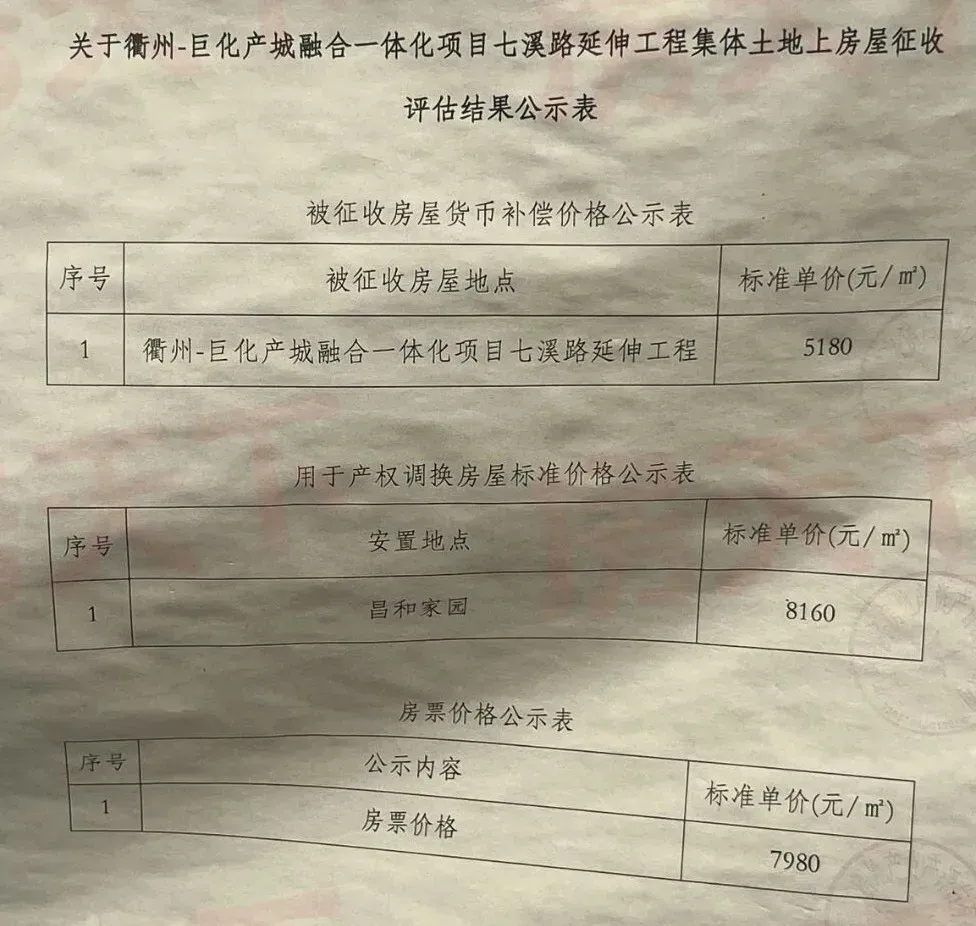 关于衢州-巨化产城融合一体化项目七溪路延伸工程集体土地上房屋征收
评估结果公示表
被征收房屋货币补偿价格公示表
序号 被征收房屋地点 标准单价(元/㎡)
1 衢州-巨化产城融合一体化项目七溪路延伸工程 5180
用于产权调换房屋标准价格公示表
序号 安置地点 标准单价(元/㎡)
1 昌和家园 8160
房票价格公示表
序号 公示内容 标准单价(元/㎡)
1 房票价格 7980